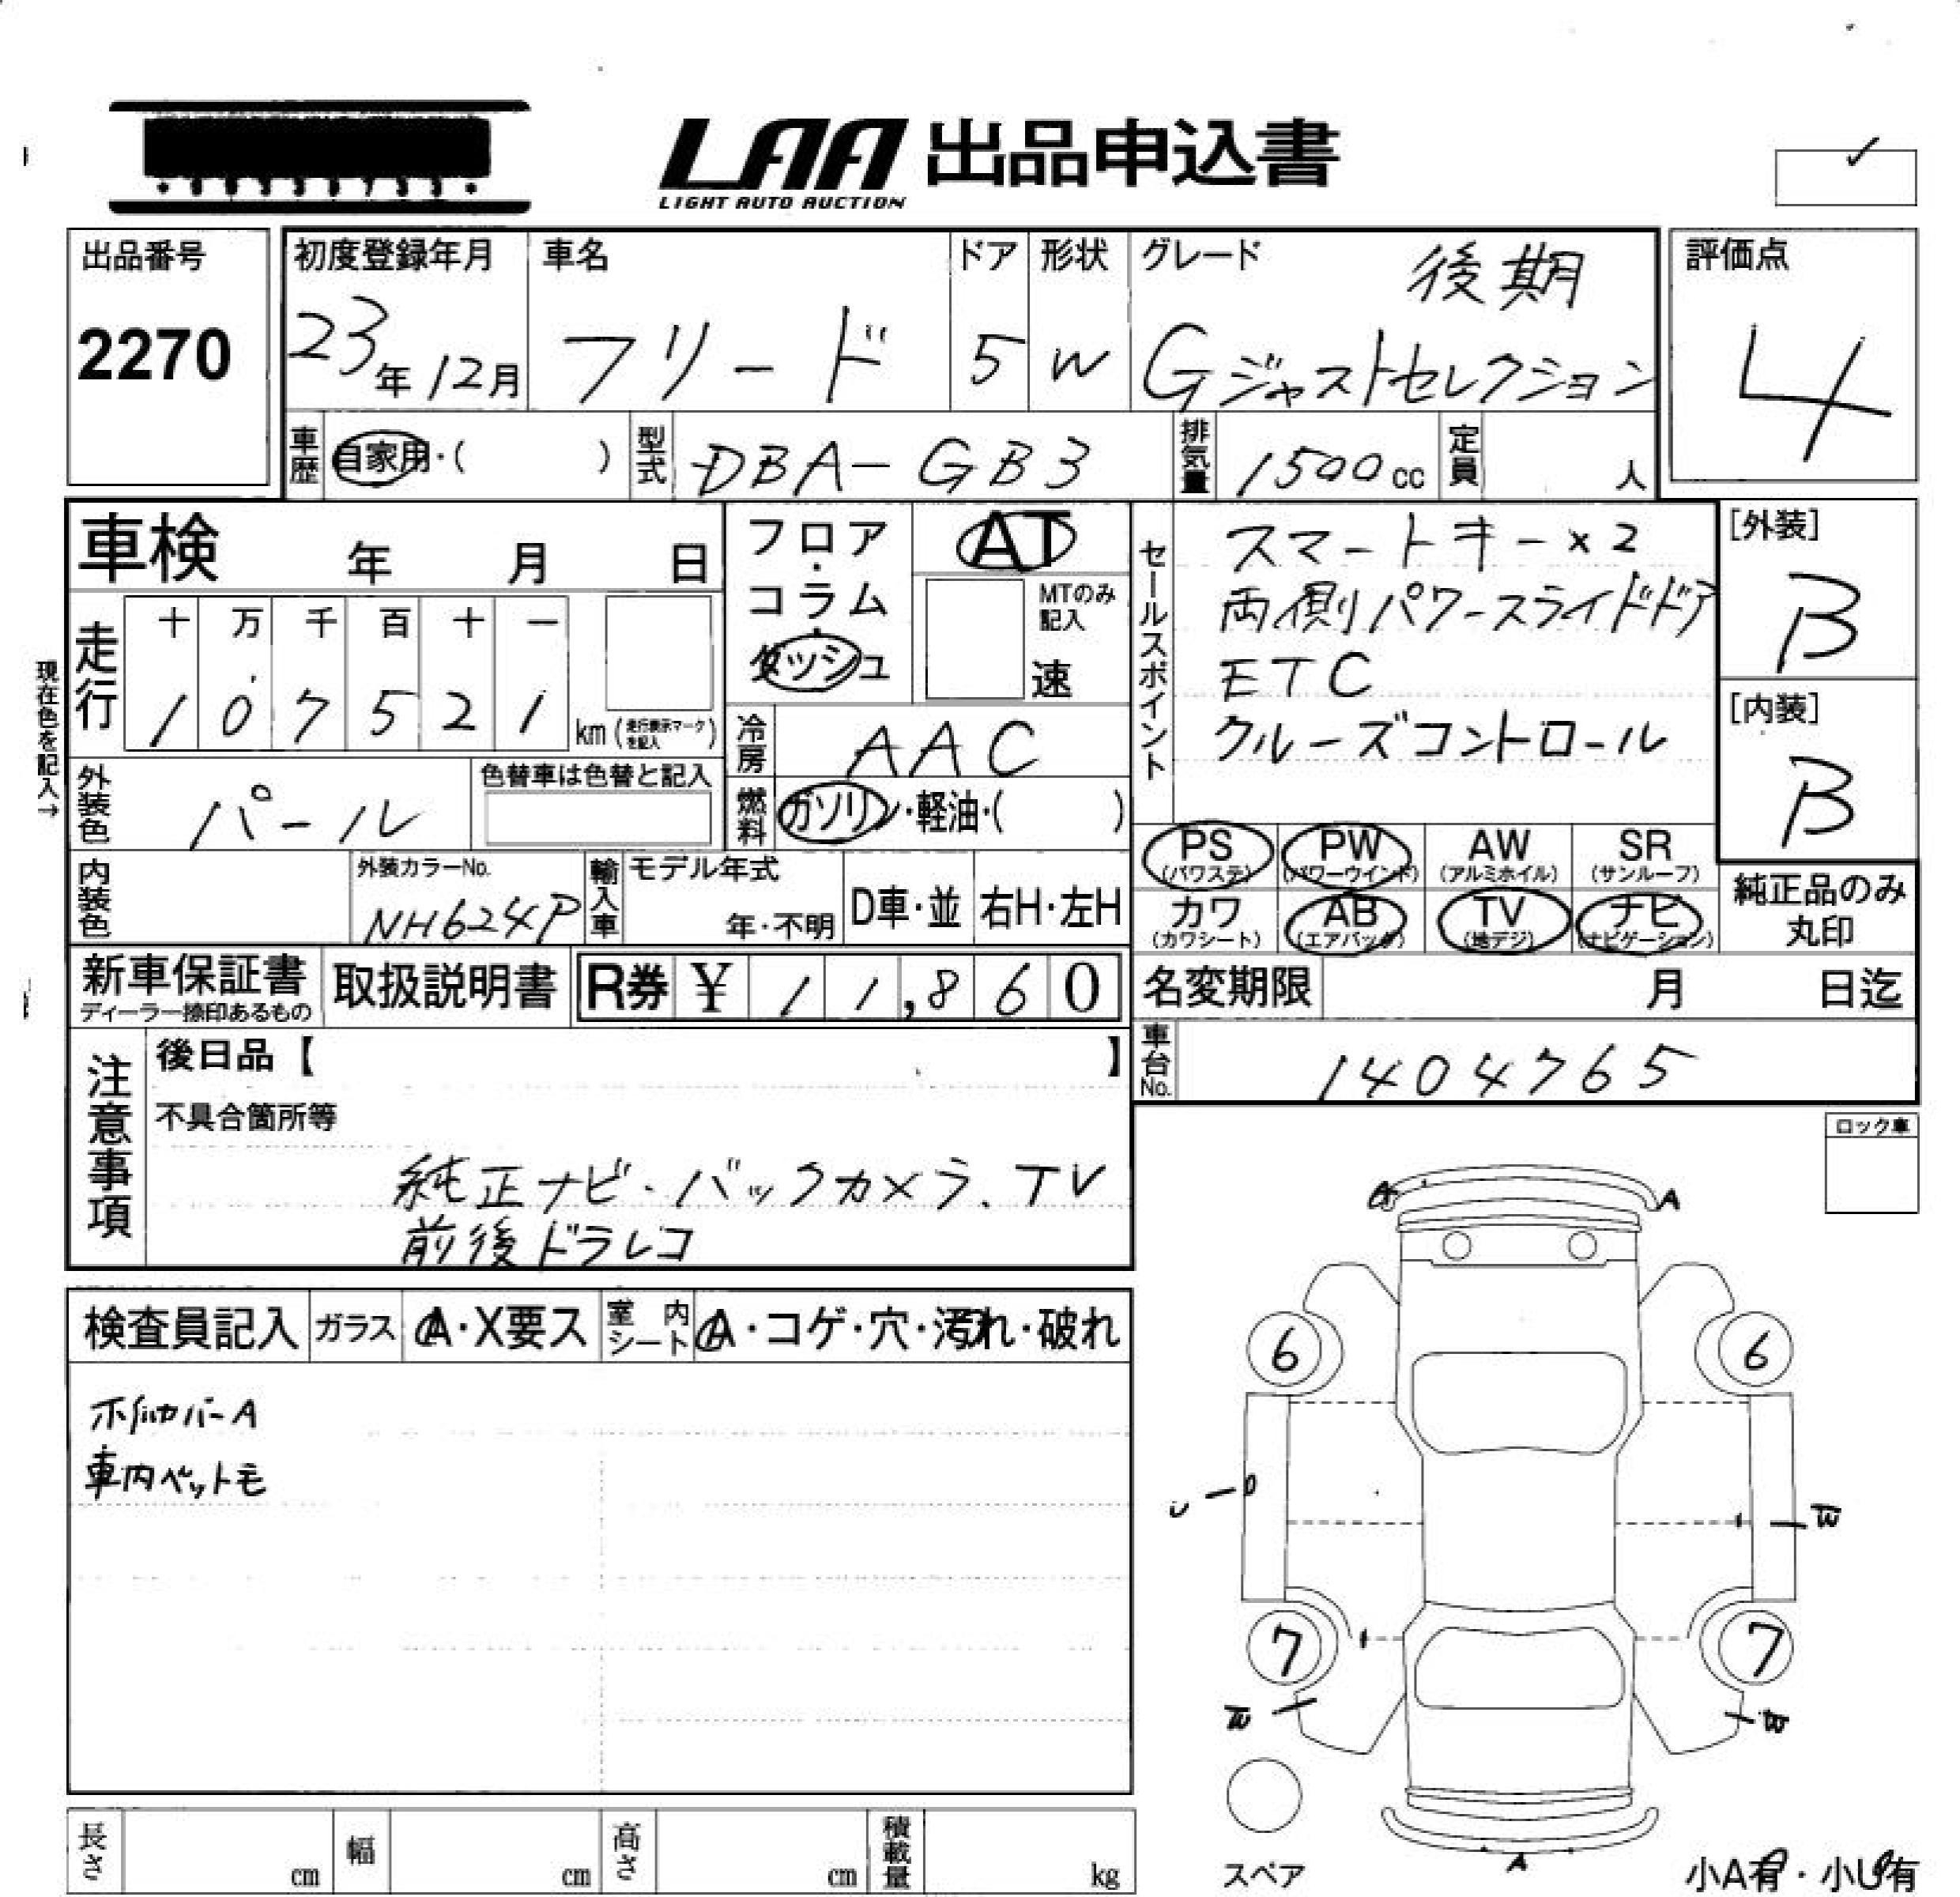 LAA 出品申込書
LIGHT AUTO AUCTION
出品番号
2270
初度登録年月
23年12月
車名
フリード
ドア
5
形状
W
グレード
後期
Gジャストセレクション
評価点
4
車歴
自家用・( )
型式
DBA-GB3
排気量
1500cc
定員
人
車検 年 月 日
フロア・コラム・ダッシュ
AT
MTのみ記入
速
セールスポイント
スマートキー×2
両側パワースライドドア
ETC
クルーズコントロール
[外装]
B
[内装]
B
現在色を記入→
走行
十 万 千 百 十 一
1 0 7 5 2 1 km (走行表示マークを記入)
冷房
AAC
外装色
パール
色替車は色替と記入
燃料
ガソリン・軽油・( )
内装色
外装カラーNo.
NH624P
輸入車
モデル年式
年・不明
D車・並
右H・左H
PS (パワステ)
PW (パワーウインド)
AW (アルミホイル)
SR (サンルーフ)
カワ (カワシート)
AB (エアバック)
TV (地デジ)
ナビ (ナビゲーション)
純正品のみ丸印
新車保証書
ディーラー捺印あるもの
取扱説明書
R券 ¥ 11,860
名変期限 月 日迄
車台No.
1404765
注意事項
後日品【 】
不具合箇所等
純正ナビ・バックカメラ.TV
前後ドラレコ
ロック車
検査員記入
ガラス
A・X要ス
室内シート
A・コゲ・穴・汚れ・破れ
車内ペット毛
A A
6 6
U
W
7 7
W W
A
スペア
小A有・小U有
長さ cm
幅 cm
高さ cm
積載量 kg